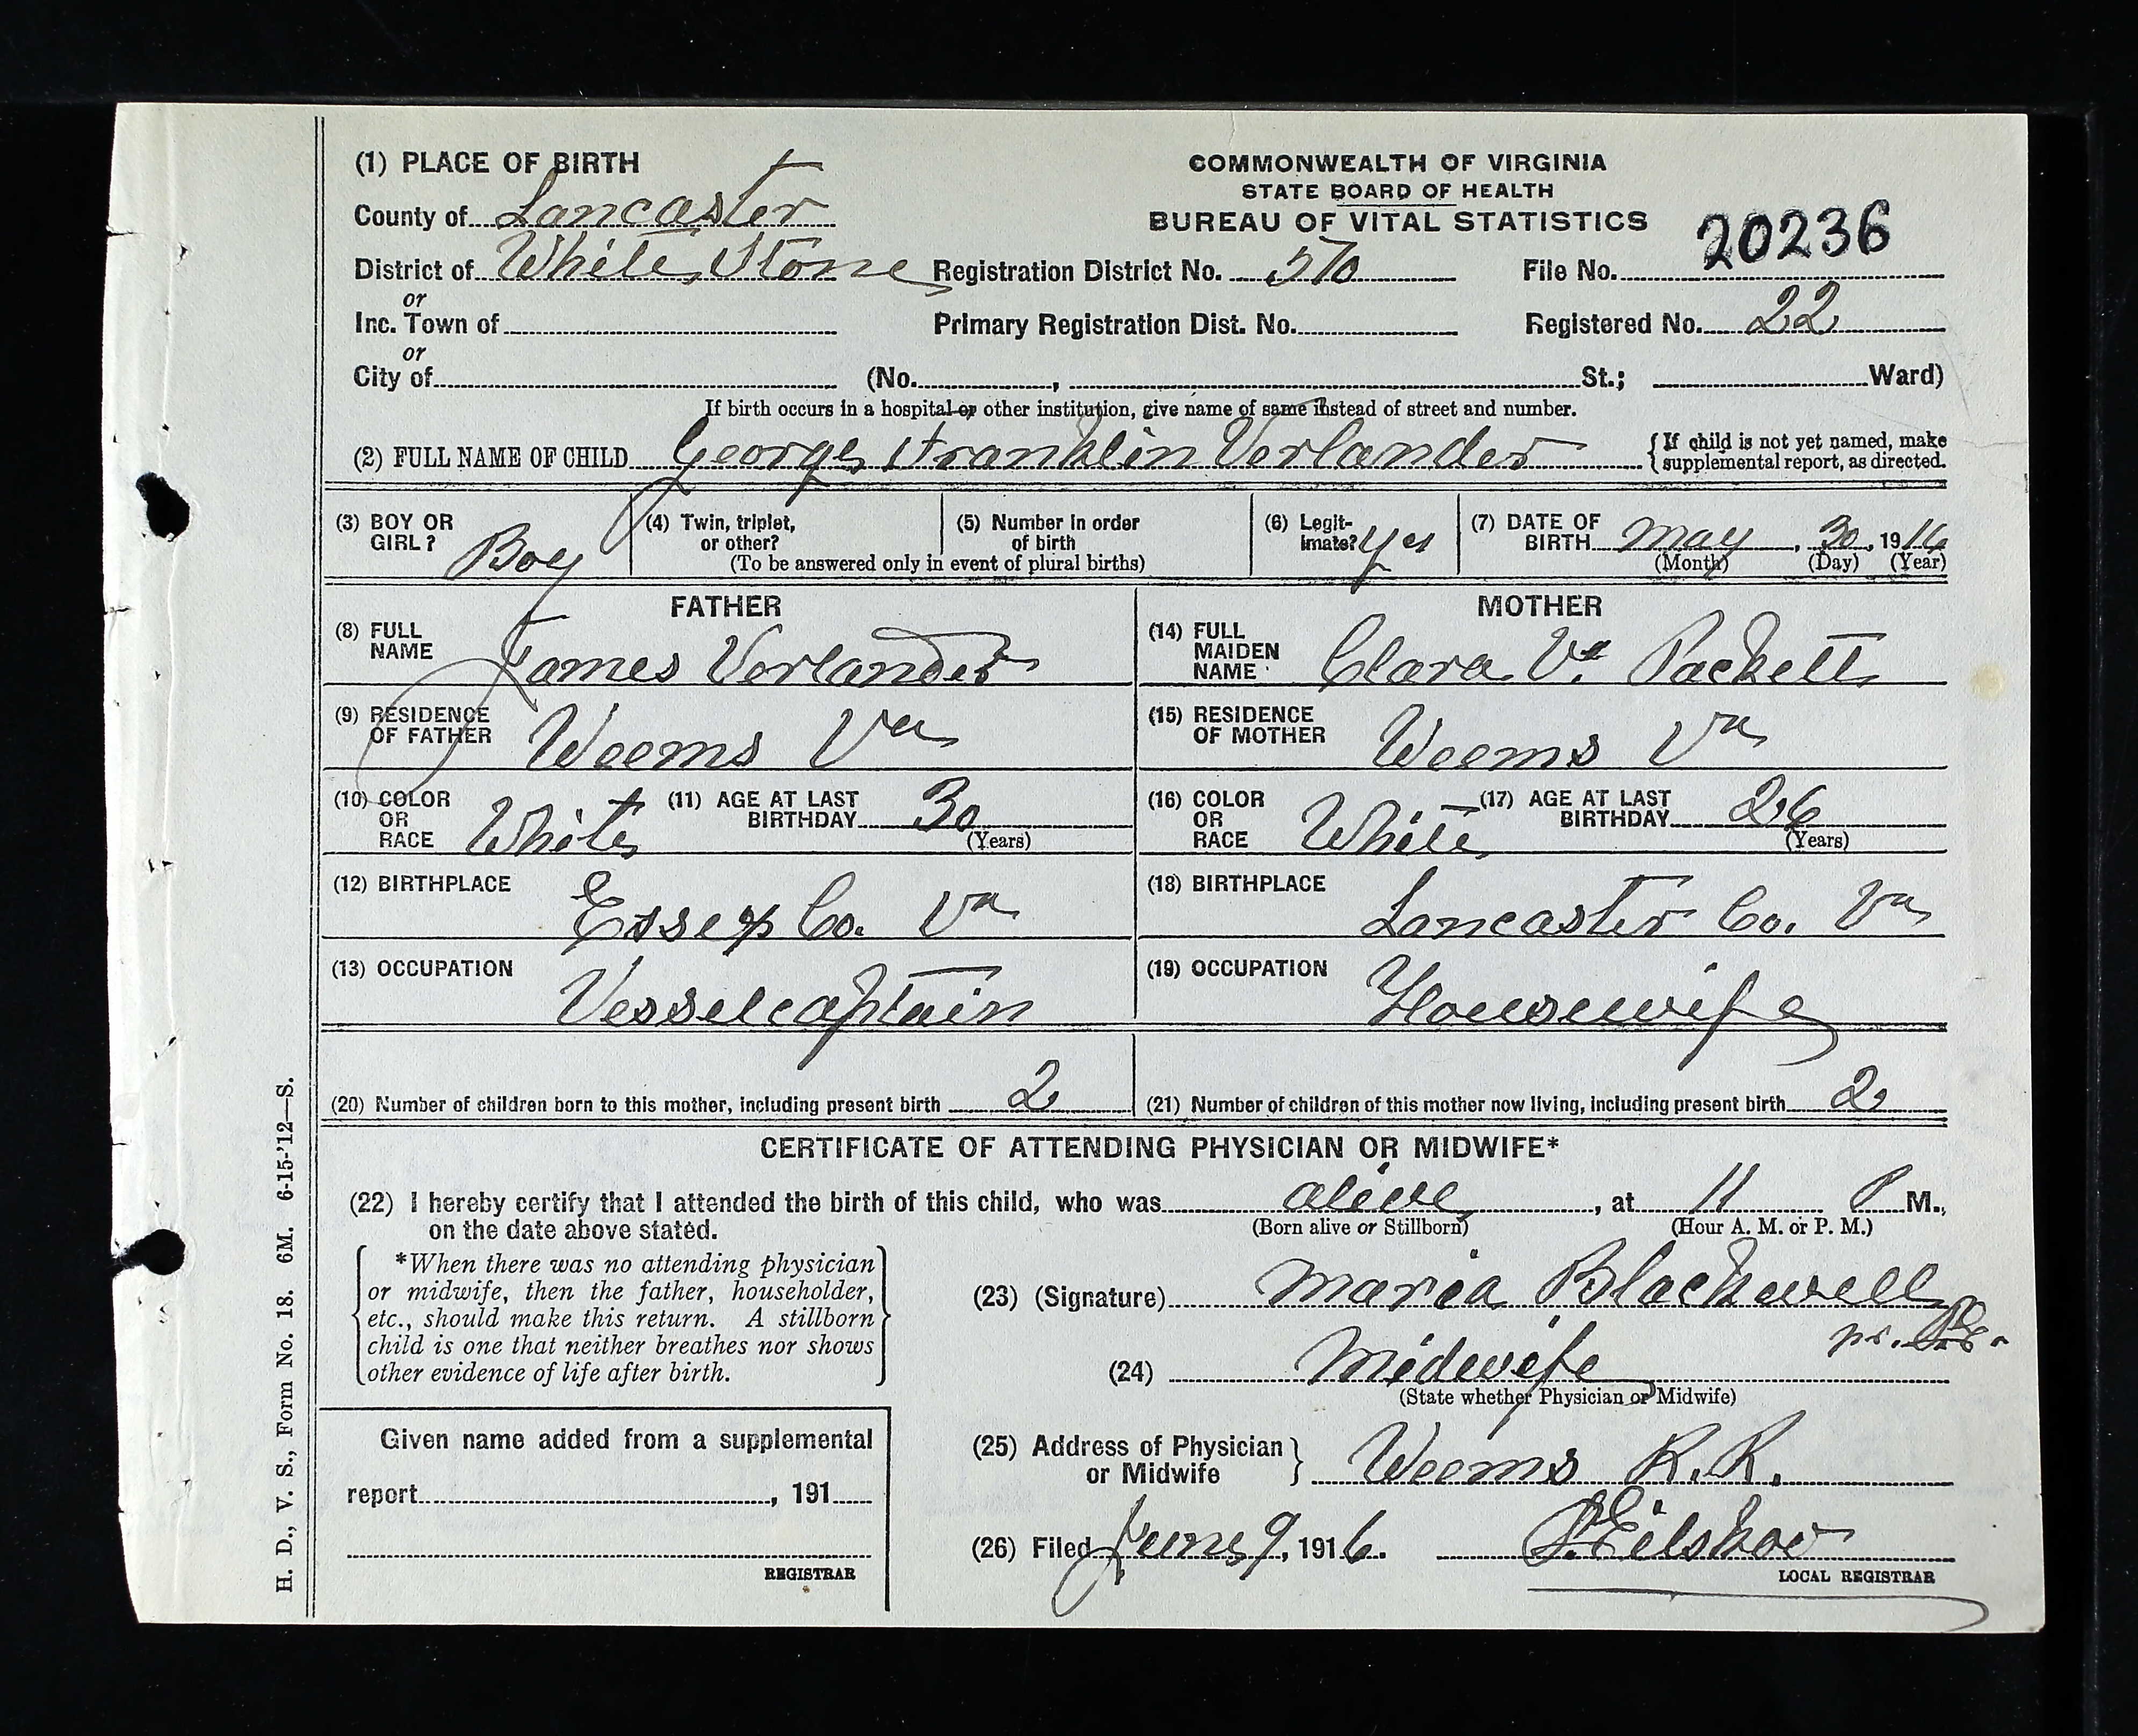 (1) PLACE OF BIRTH
COMMONWEALTH OF VIRGINIA
STATE BOARD OF HEALTH
BUREAU OF VITAL STATISTICS
County of Lancaster
20236
District of White Stone Registration District No. 570 File No.
or
Inc. Town of Primary Registration Dist. No. Registered No. 22
or
City of (No. , St.; Ward)
If birth occurs in a hospital or other institution, give name of same instead of street and number.
(2) FULL NAME OF CHILD George Franklin Verlander {If child is not yet named, make
supplemental report, as directed.
(3) BOY OR GIRL? Boy
(4) Twin, triplet, or other?
(5) Number in order of birth
(To be answered only in event of plural births)
(6) Legitimate? Yes
(7) DATE OF BIRTH May, 30, 1916
(Month) (Day) (Year)
FATHER
(8) FULL NAME James Verlander
(9) RESIDENCE OF FATHER Weems Va
(10) COLOR OR RACE White (11) AGE AT LAST BIRTHDAY 30
(Years)
(12) BIRTHPLACE Essex Co. Va
(13) OCCUPATION Vessel captain
MOTHER
(14) FULL MAIDEN NAME Clara Va. Packett
(15) RESIDENCE OF MOTHER Weems Va
(16) COLOR OR RACE White (17) AGE AT LAST BIRTHDAY 26
(Years)
(18) BIRTHPLACE Lancaster Co. Va
(19) OCCUPATION Housewife
(20) Number of children born to this mother, including present birth 2
(21) Number of children of this mother now living, including present birth 2
CERTIFICATE OF ATTENDING PHYSICIAN OR MIDWIFE*
(22) I hereby certify that I attended the birth of this child, who was alive, at 11 P M.,
(Born alive or Stillborn) (Hour A. M. or P. M.)
on the date above stated.
*When there was no attending physician
or midwife, then the father, householder,
etc., should make this return. A stillborn
child is one that neither breathes nor shows
other evidence of life after birth.
(23) (Signature) Maria Blackwell
pr.
(24) Midwife
(State whether Physician or Midwife)
Given name added from a supplemental
report , 191
REGISTRAR
(25) Address of Physician or Midwife } Weems R.R.
(26) Filed June 9, 1916.
LOCAL REGISTRAR
H. D., V. S., Form No. 18. 6M. 6-15-'12—S.